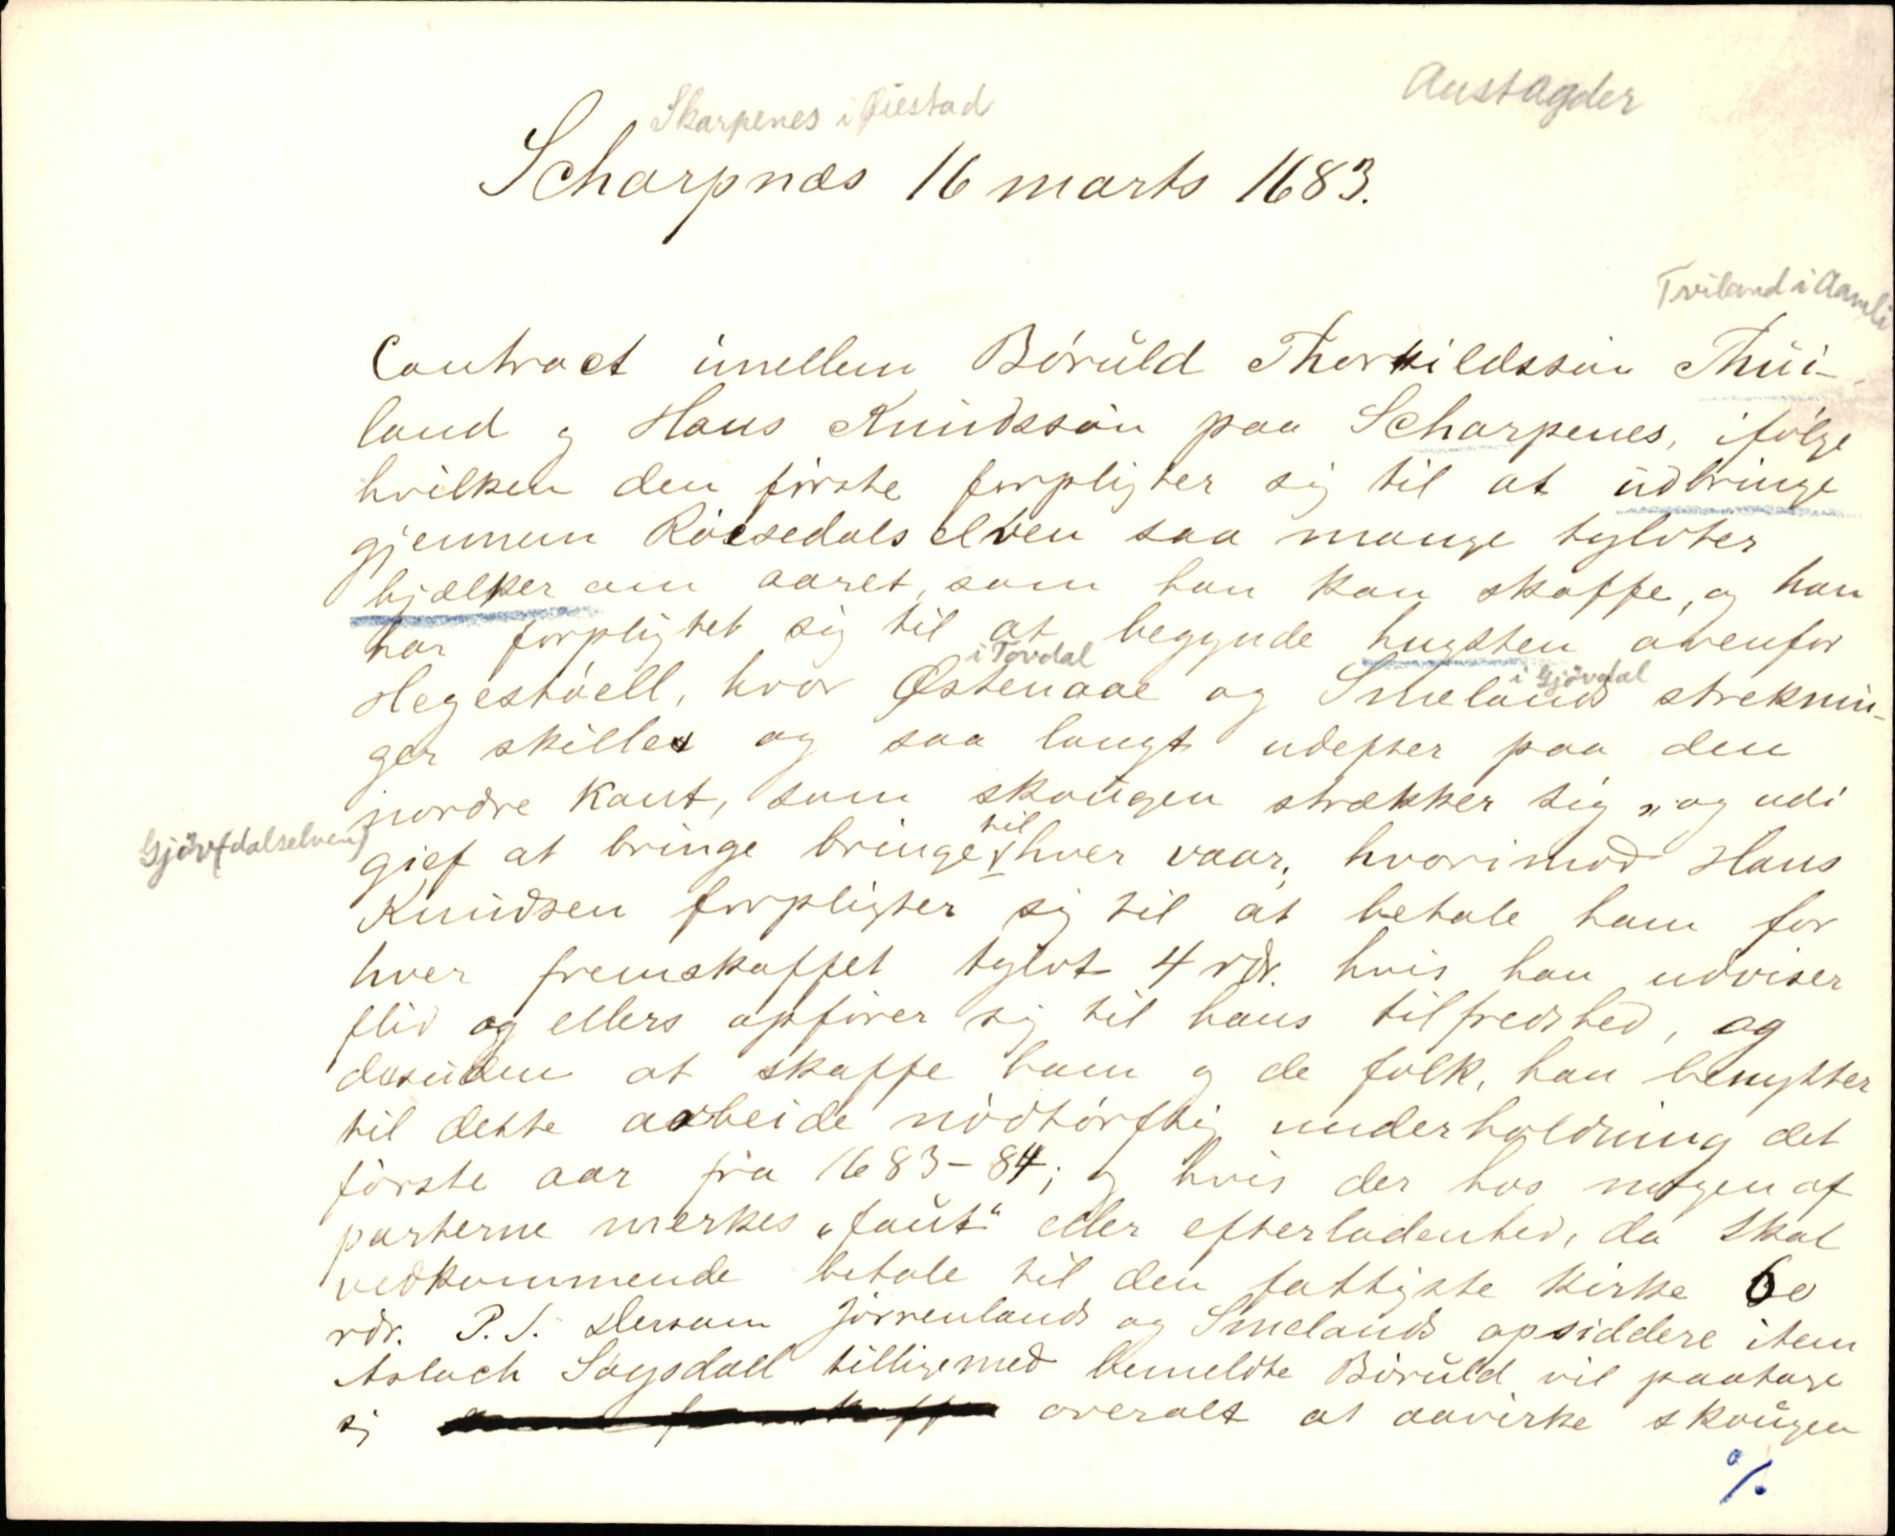 Austagder
Skarpenes i Øiestad
Scharpnæs 16 marts 1683.
Tviland i Aamli
Contract imellem Böruld Thorkildssön Thui-
land og Hans Knudssön paa Scharpenes, ifölge
hvilken den förste forpligter sig til at udbringe
gjennem Röesedals elven saa mange tylvter
bjælker om aaret, som han kan skaffe, og han
har forpligtet sig til at begynde hugsten ovenfor
i Tovdal
i Gjövdal
Hegestöell, hvor Østenaae og Smelands streknin-
ger skilles og saa langt udefter paa den
nordre kant, som skougen strækker sig „og udi
Gjöv(dalselven)
gief at bringe bringe til hver vaar; hvorimod Hans
Knudsen forpligter sig til at betale ham for
hver fremskaffet tylvt 4 rdr. hvis han udviser
flid og ellers opförer sig til hans tilfredshed, og
desuden at skaffe ham og de folk, han benytter
til dette arbeide nödtörftig underholdning det
förste aar fra 1683-84; og hvis der hos nogen af
parterne merkes „faut“ eller efterladenhed, da skal
vedkommende betale til den fattigste kirke 60
rdr. P.S. Dersom Jörrenlands og Smelands opsiddere item
Asloch Sagsdall tilligemed bemeldte Böruld vil paatage
sig overalt at aavirke skougen
%